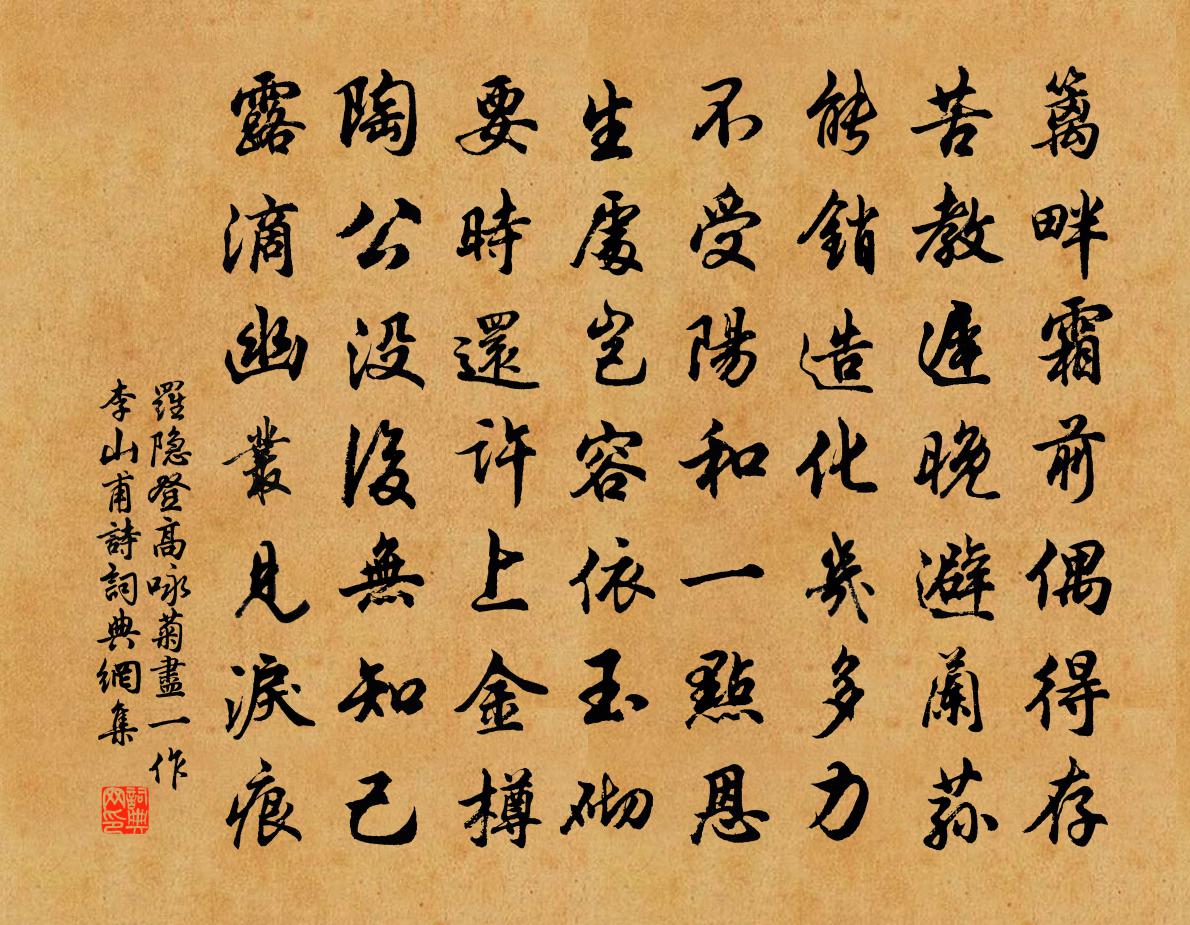 籬畔霜前偶得存
苦教遲晚避蘭蓀
能銷造化幾多力
不受陽和一點恩
生處豈容依玉砌
要時還許上金樽
陶公没後無知己
露滴幽叢見淚痕
羅隐登高咏菊盡一作
李山甫詩詞典網集
詞典网印